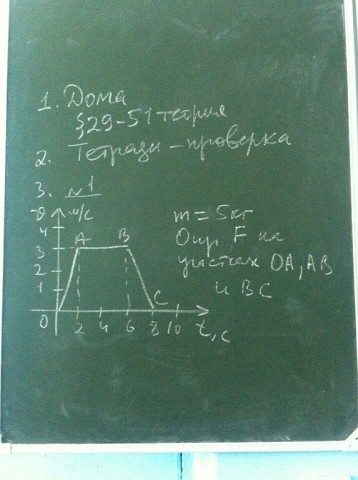 1. Дома
§29-51 теория
2. Тетради - проверка
3. №1
v м/с
4
3
2
1
0
A B
C
2 4 6 8 10 t, с
m = 5кг
Опр F на
участках OA, AB
и BC